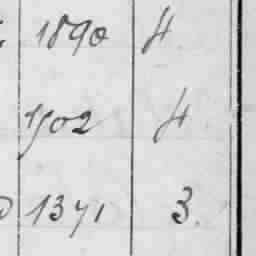 1890 4
1902 4
1371 3.